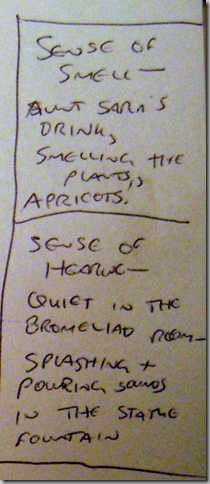 SENSE OF
SMELL—
AUNT SARA'S
DRINK,
SMELLING THE
PLANTS,
APRICOTS.
SENSE OF
HEARING—
QUIET IN THE
BROMELIAD ROOM—
SPLASHING +
POURING SOUNDS
IN THE STATUE
FOUNTAIN